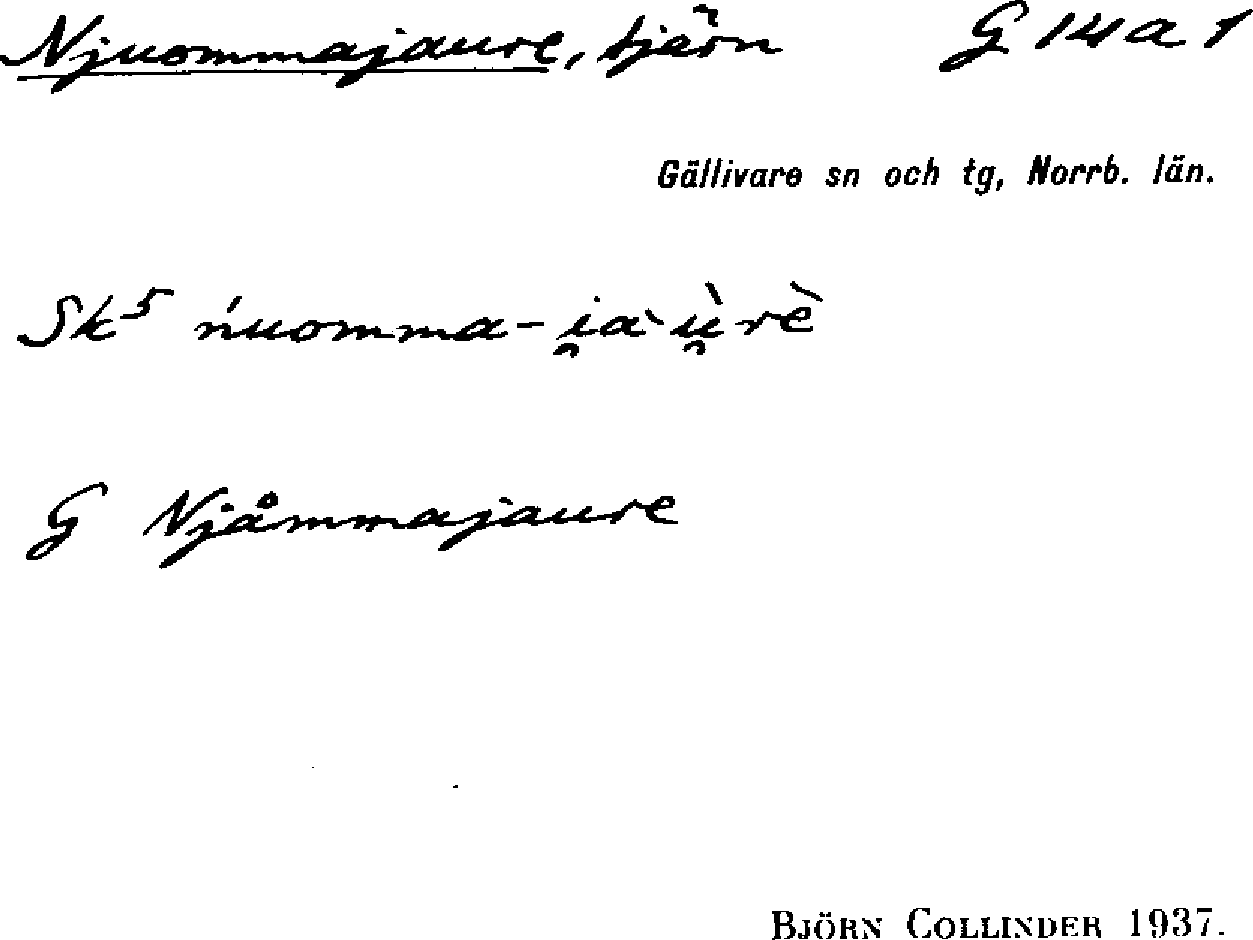 Njuommajaure, tjärn G 14 a 1
Gällivare sn och tg, Norrb. län.
Sk⁵ ńuomma-i̯aˋù̯rè
G Njåmmajaure
BJÖRN COLLINDER 1937.